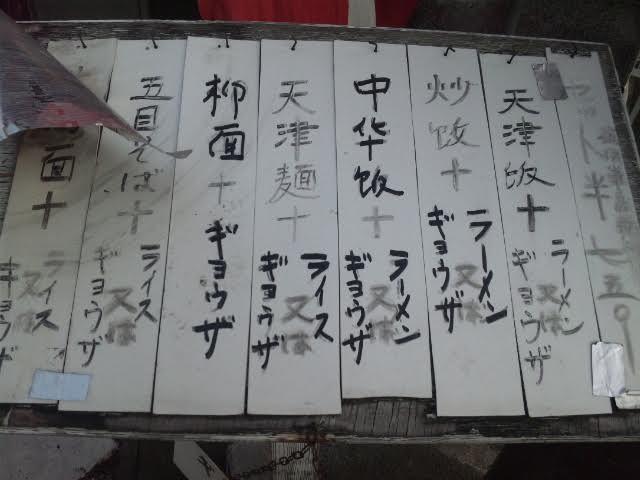 セット半 七五〇
天津饭十
ラーメン
又は
ギョウザ
炒饭十
ラーメン
又は
ギョウザ
中华饭十
ラーメン
又は
ギョウザ
天津麺十
ライス
又は
ギョウザ
柳面十ギョウザ
五目そば十
ライス
又は
ギョウザ
面十
ライス
又は
ギョウザ